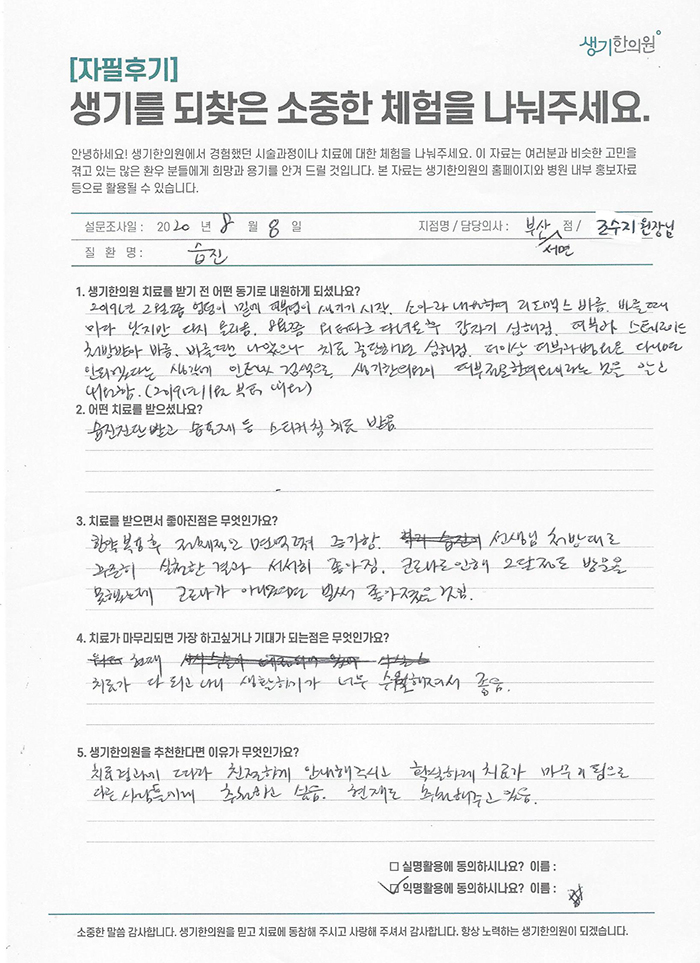 생기한의원
[자필후기]
생기를 되찾은 소중한 체험을 나눠주세요.
안녕하세요! 생기한의원에서 경험했던 시술과정이나 치료에 대한 체험을 나눠주세요. 이 자료는 여러분과 비슷한 고민을
겪고 있는 많은 환우 분들에게 희망과 용기를 안겨 드릴 것입니다. 본 자료는 생기한의원의 홈페이지와 병원 내부 홍보자료
등으로 활용될 수 있습니다.
설문조사일 : 2020 년 8 월 8 일 지점명 / 담당의사 : 부산 서면 점 / 조수지 원장님
질 환 명 : 습진
1. 생기한의원 치료를 받기 전 어떤 동기로 내원하게 되셨나요?
2019년 2월쯤 엉덩이 밑에 생기기 시작. 소아과 내원하여 리도맥스 바름. 바를때
마다 낫지만 다시 올라옴. 8월쯤 다녀온 후 갑자기 심해짐. 피부과 스테로이드
처방받아 바름. 바를땐 나았으나 치료 중단하면 심해짐. 더이상 피부과병원은 다니면
안되겠다는 생각에 인터넷 검색으로 생기한의원이 피부전문한의원이라는 것을 알고
내원함. (2019년 11월 부터 내원)
2. 어떤 치료를 받으셨나요?
습진진단 받고 등 스티커침 치료 받음
3. 치료를 받으면서 좋아진점은 무엇인가요?
한약복용 후 전체적인 면역력 증가함. 선생님 처방대로
꾸준히 실천한 결과 서서히 좋아짐. 코로나로 인해 2달정도 방문을
못했는데 코로나가 아니었으면 벌써 좋아졌을 것임.
4. 치료가 마무리되면 가장 하고싶거나 기대가 되는점은 무엇인가요?
현재
치료가 다 되고나니 생활하기가 너무 수월해져서 좋음.
5. 생기한의원을 추천한다면 이유가 무엇인가요?
치료경과에 따라 친절하게 안내해주시고 확실하게 치료가 마무리됨으로
다른 사람들에게 추천하고 싶음. 현재도 추천해주고 있음.
☐ 실명활용에 동의하시나요? 이름 :
☑ 익명활용에 동의하시나요? 이름 :
소중한 말씀 감사합니다. 생기한의원을 믿고 치료에 동참해 주시고 사랑해 주셔서 감사합니다. 항상 노력하는 생기한의원이 되겠습니다.